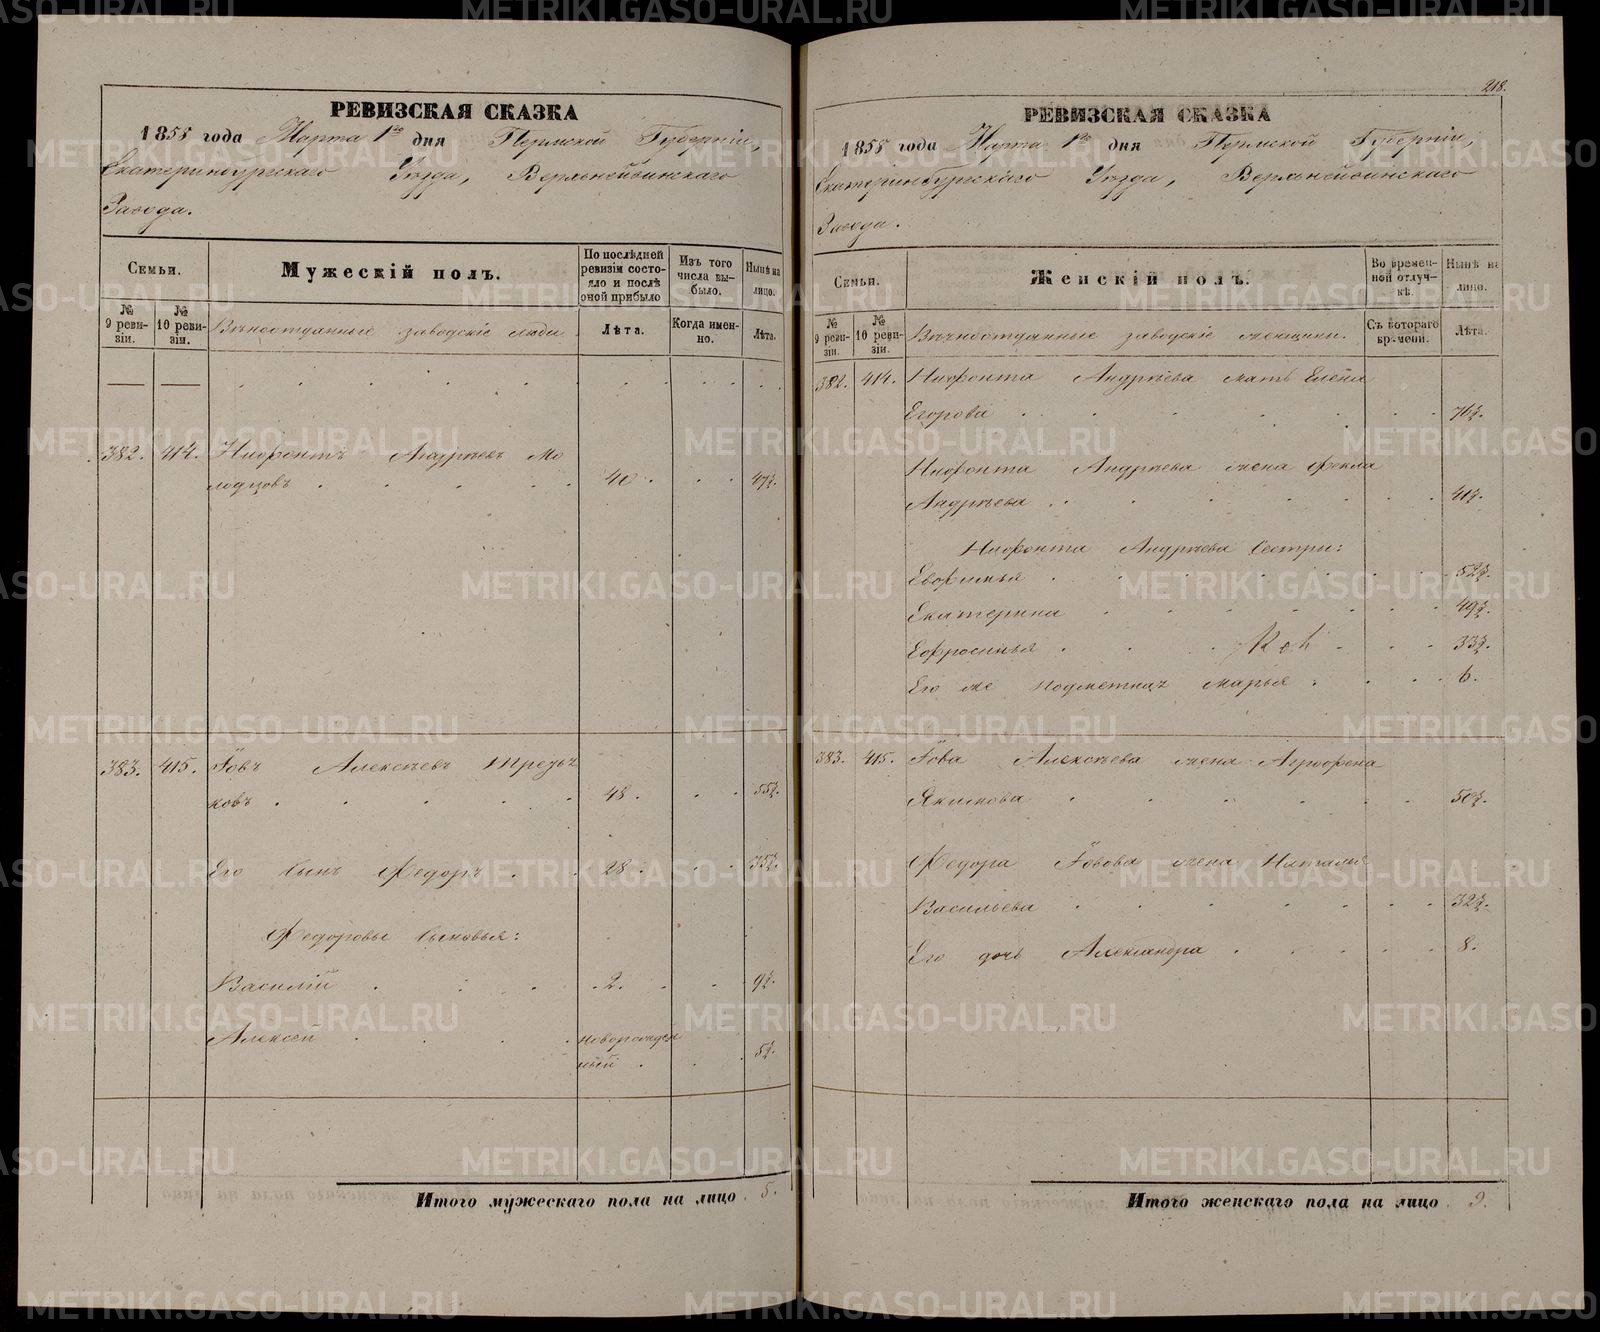 РЕВИЗСКАЯ СКАЗКА
1855 года Марта 1го дня Пермской Губернiи,
Екатеринбургскаго Уѣзда, Верхнейвинскаго
Завода.
Семьи.
Мужескiй полъ.
По послѣдней ревизiи состояло и послѣ оной прибыло
Изъ того числа выбыло.
Нынѣ на лицо.
№ 9 ревизiи.
№ 10 ревизiи.
Вѣчноотданные заводскiе люди
Лѣта.
Когда именно.
Лѣта.
382. 414. Нифонтъ Андрѣевъ Мо
лодцовъ . . . . . 40 . . . 47½.
383. 415. Iовъ Алексѣевъ Третья
ковъ . . . . . 48 . . . 55½.
Его сынъ Федоръ . . 28 . . 35½.
Федоровы сыновья:
Василiй . . . . 2. . . 9½.
Алексѣй . . . . новорожден
ный . . . 5½.
Итого мужескаго пола на лицо . 5.
218.
РЕВИЗСКАЯ СКАЗКА
1855 года Марта 1го дня Пермской Губернiи,
Екатеринбургскаго Уѣзда, Верхнейвинскаго
Завода.
Семьи.
Женскiй полъ.
Во временной отлучкѣ.
Нынѣ на лицо.
№ 9 ревизiи.
№ 10 ревизiи.
Вѣчноотданные заводскiе женщины.
Съ котораго времени.
Лѣта.
382. 414. Нифонта Андрѣева мать Елена
Егорова . . . . . . . 76½.
Нифонта Андрѣева жена Фекла
Андрѣева . . . . . . . 41½.
Нифонта Андрѣева сестры:
Евфимья . . . . . . 52½.
Екатерина . . . . . . . 49½.
Ефросинья . . . . . . 33½.
Его же подметышъ Марья . . . . 6.
383. 415. Iова Алексѣева жена Агрофена
Якимова . . . . . . . 50½.
Федора Iовова жена Наталья
Васильева . . . . . . . 32½.
Его дочь Александра . . . . . 8.
Итого женскаго пола на лицо . 9.
METRIKI.GASO-URAL.RU